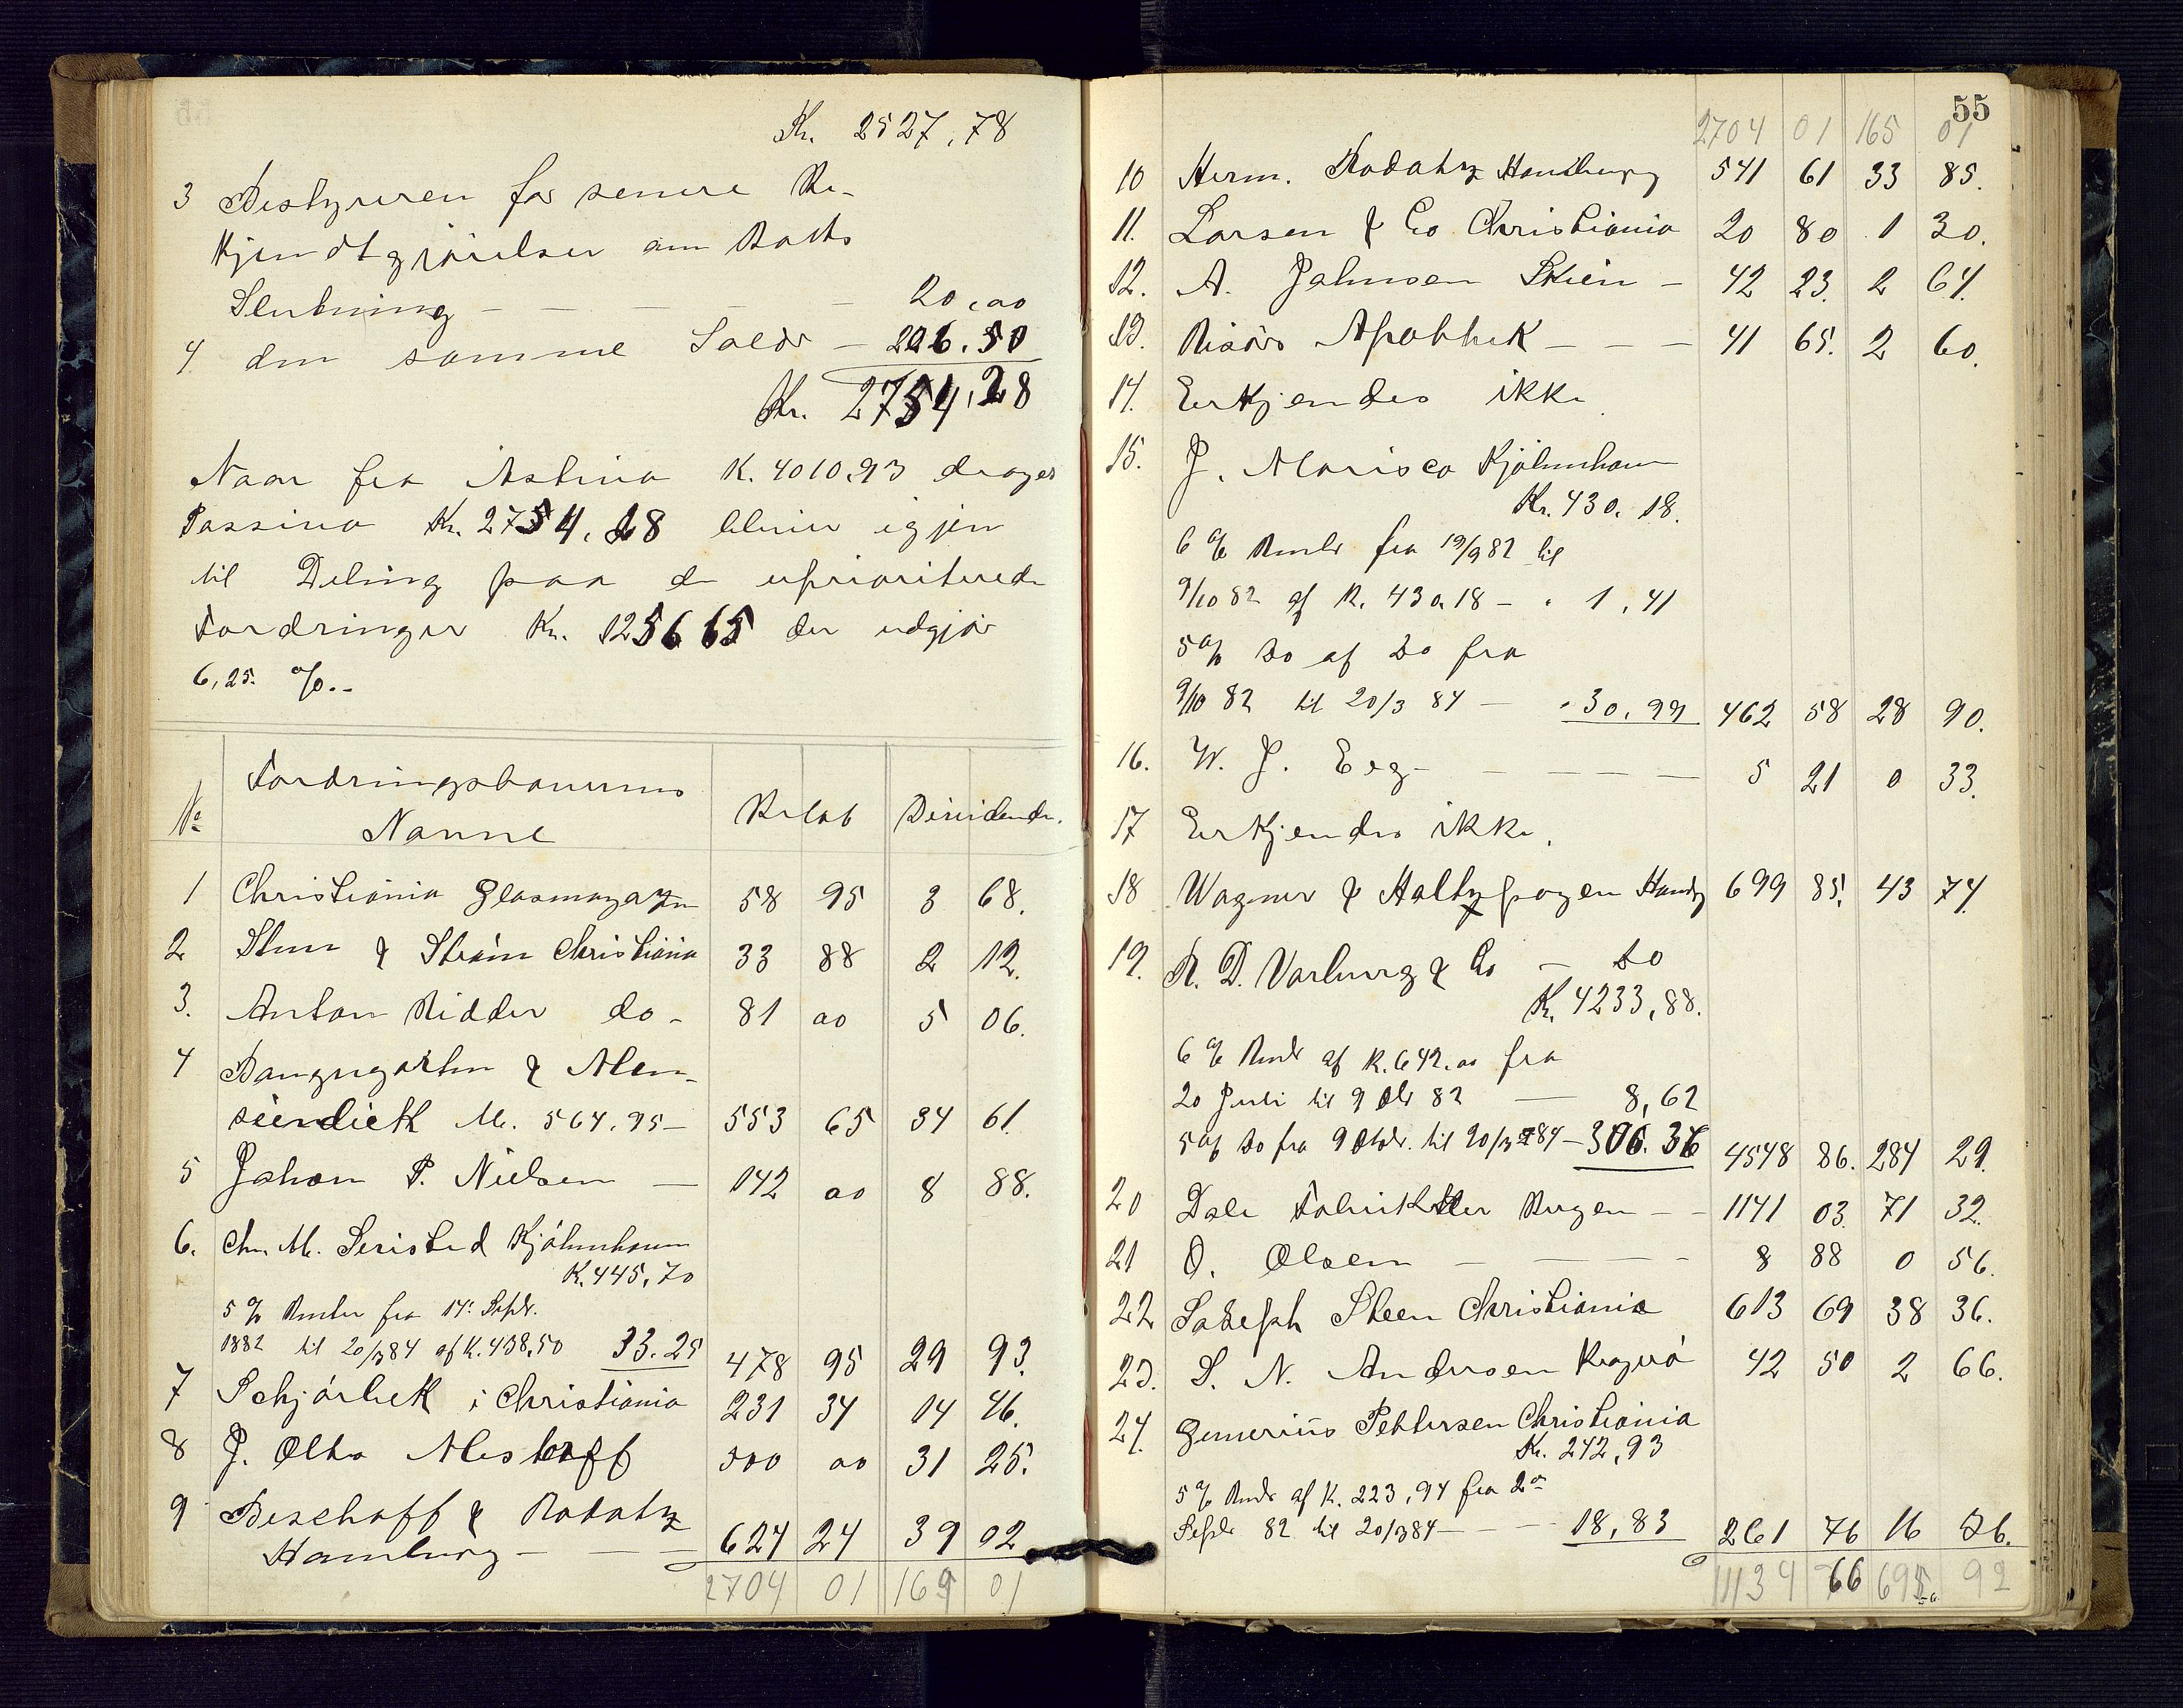 Kr. 2527,78
3 Bestyreren for senere Be-
kjendtgjörelser om Boets
Slutning - - - - 20,oo
4 den samme Salær - 206.50
Kr. 2754,28
Naar fra Aktiva K. 4010,93 drages
Passiva Kr. 2754,28 bliver igjen
til Deling paa de uprioriterede
Fordringer Kr. 1256 65 der udgjör
6,25. %..
No Fordringshaverens Navne Beløb Dividende.
1 Christiania Glasmagazin 58 95 3 68.
2 Steen & Ström Christiania 33 88 2 12.
3. Anton Ridder do - 81 oo 5 06.
4 Baumgarten & Alen-
siendieck M. 564,95 - 553 65 34 61.
5 Johan P. Nielsen - 142 oo 8 88.
6. Chr. M. Seristed Kjöbenhavn
K. 445,70
5 % Renter fra 14: Septr.
1882 til 20/3 84 af K. 438,50 33.25 478 95 29 93.
7 Schjörbek i Christiania 231 34 14 46.
8 J. Otto Mestorff 500 oo 31 25.
9 Bischoff & Rodatz
Hamburg - - - 624 24 39 02
2704 01 169 01
55
2704 01 165 01
10 Herm. Rodatz Hamburg 541 61 33 85.
11. Larsen & Co Christiania 20 80 1 30.
12. A. Johnsen Skien - 42 23. 2 64.
13. Risörs Apothek - - - 41 65. 2 60.
14. Erkjendes ikke
15. J. Moresco Kjöbenhavn
Kr. 430. 18.
6 % Rente fra 19/9 82 til
9/10 82 af K. 430.18 - " 1,41
5 % Do af Do fra
9/10 82 til 20/3 84 - " 30,99 462 58 28 90.
16. W. J. Eeg - - - - 5 21 0 33.
17 Erkjendes ikke.
18 Wagner & Holtzhagen Hambg 699 85. 43 74.
19. R. D. Varburg & Co - Do
K. 4233,88.
6 % Rente af K. 642.oo fra
20 Juli til 9 Obr 82 - 8,62
5 % Do fra 9 Oktbr. til 20/3 84 - 306.36 4548 86. 284 29.
20 Dale Fabrikker Bergen - - 1141 03. 71 32.
21 O. Olsen - - - 8 88 0 56.
22 Joseph Steen Christiania 613 69 38 36.
23. S. N. Andersen Kragerö 42 50 2 66.
24. Gunerius Pettersen Christiania
Kr. 242,93
5 % Rente af K. 223,94 fra 2den
Septr 82 til 20/3 84 - - - 18,83 261 76 16 36.
11134 66 695 92